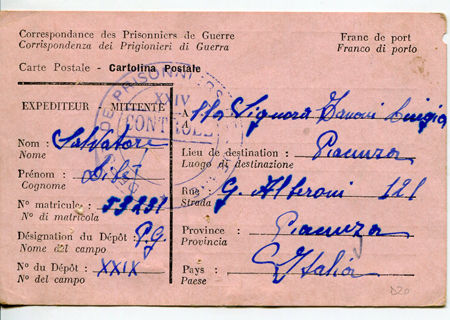 Correspondance des Prisonniers de Guerre
Corrispondenza dei Prigionieri di Guerra
Franc de port
Franco di porto
Carte Postale - Cartolina Postale
EXPEDITEUR - MITTENTE
Nom : Salvatore
Nome
Prénom :
Cognome
N° matricule: 53231
N° di matricola
Désignation du Dépôt : P.G.
Nome del campo
N° du Dépôt : XXIX
N° del campo
XXIV
CONTROLE
A lla Signora
A
Lieu de destination : Piacenza
Luogo di destinazione
Rue G. Alberoni 121
Strada
Province : Piacenza
Provincia
Pays : Italia
Paese
D20